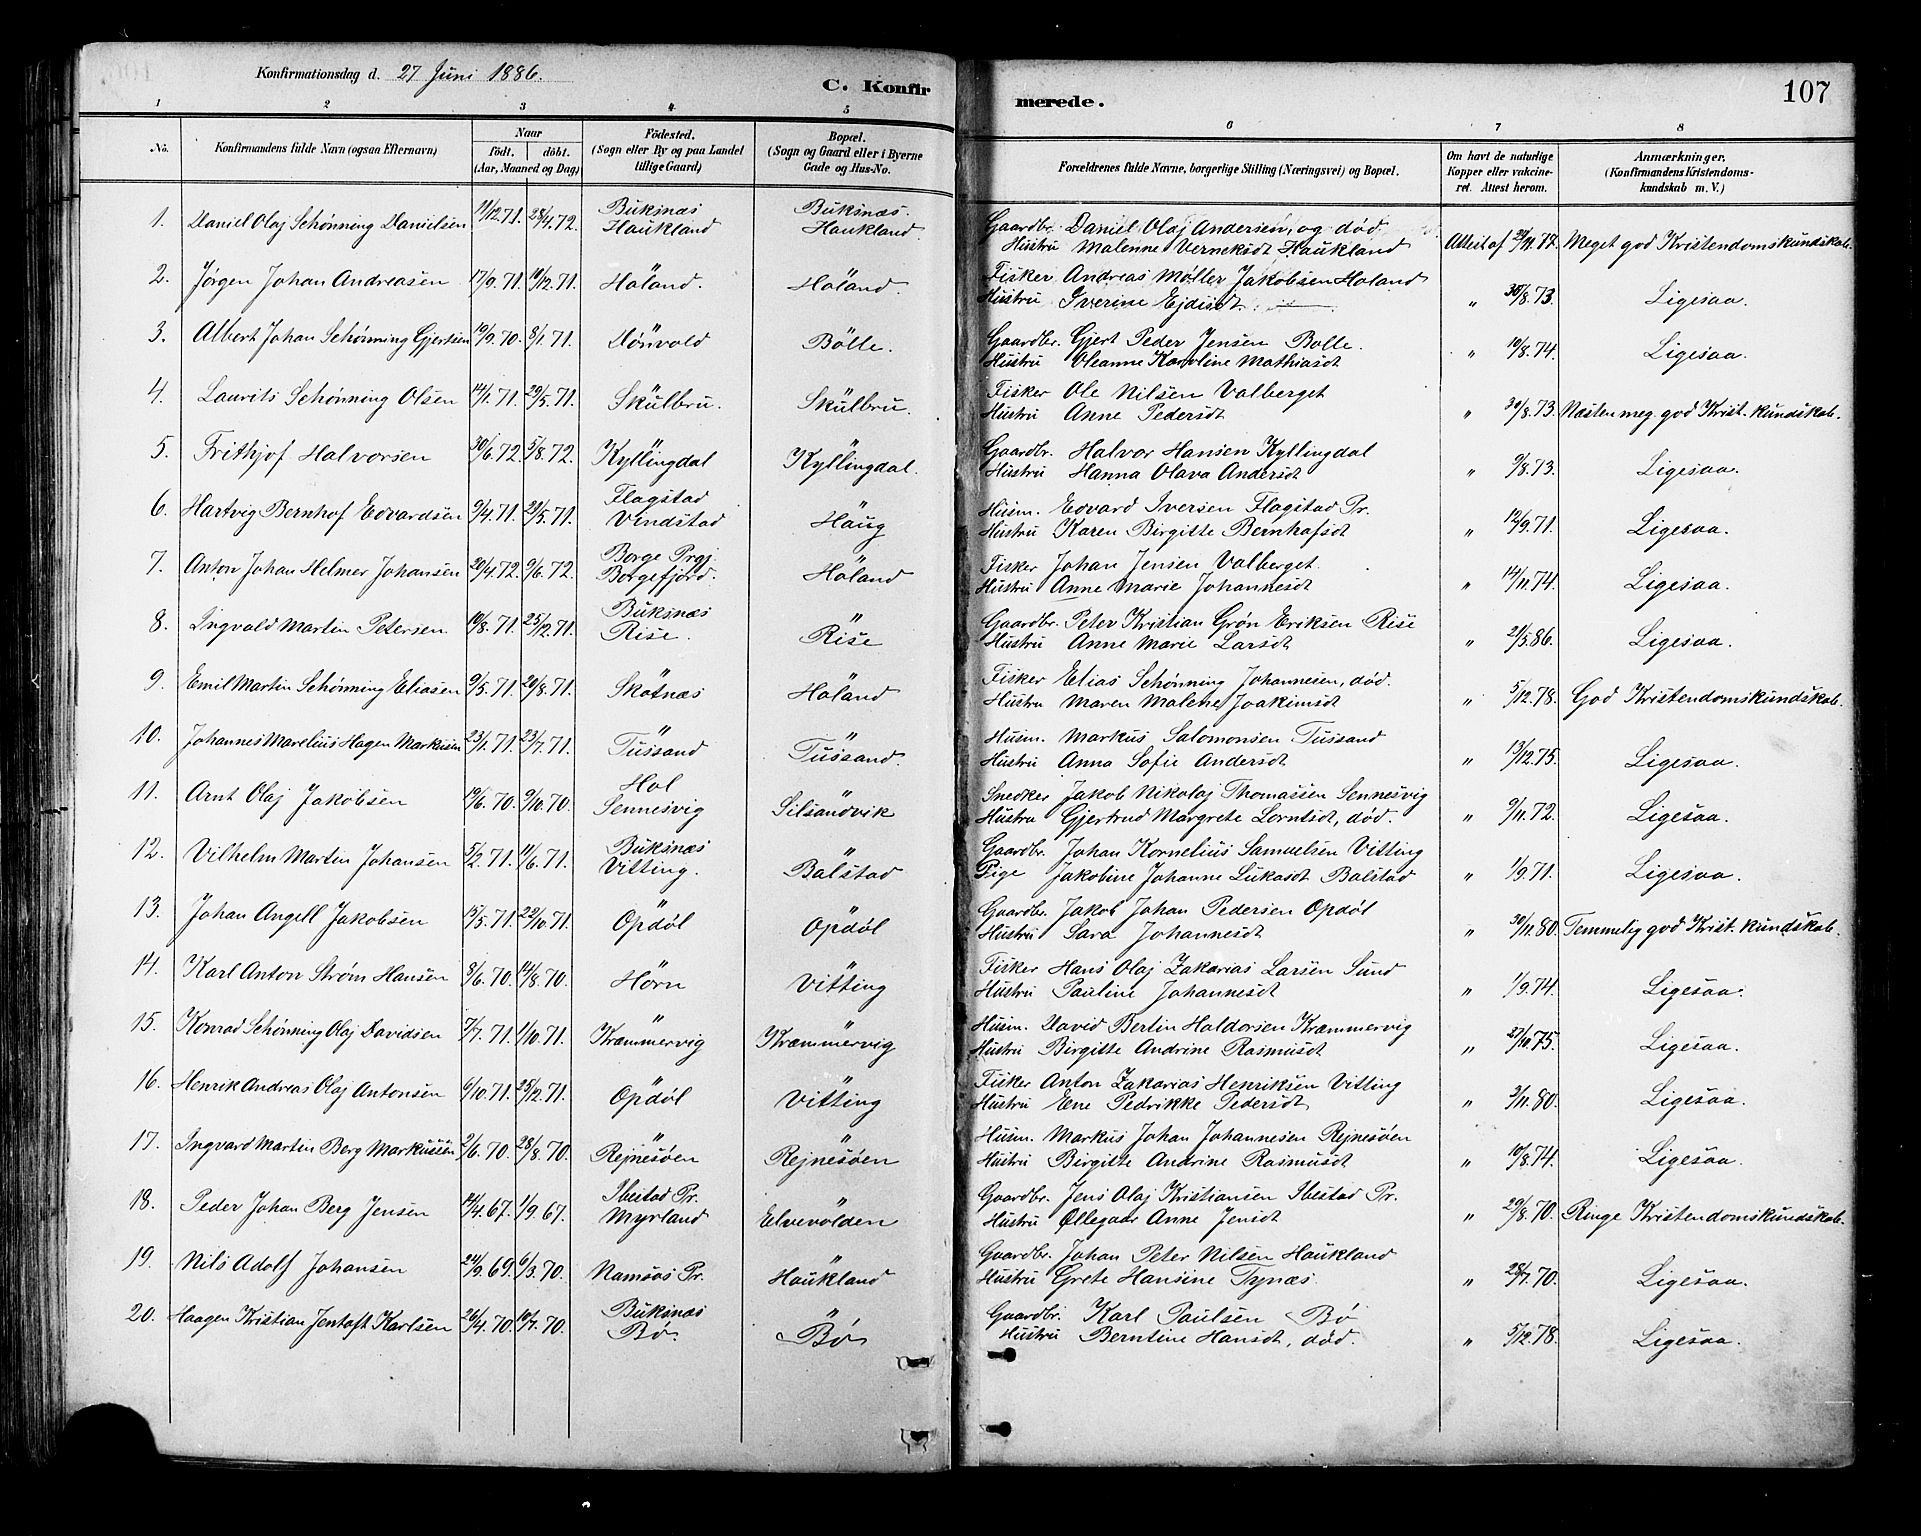 Konfirmationsdag d. 27 Juni 1886.
C. Konfirmerede. 107
1 2 3 4 5 6 7 8
No. Konfirmandens fulde Navn (ogsaa Efternavn) Naar födt. döbt. (Aar, Maaned og Dag) Födested. (Sogn eller By og paa Landet tillige Gaard) Bopæl. (Sogn og Gaard eller i Byerne Gade og Hus-No. Forældrenes fulde Navne, borgerlige Stilling (Næringsvei) og Bopæl. Om havt de naturlige Kopper eller vakcineret. Attest herom. Anmærkninger. (Konfirmandens Kristendomskundskab m. V.)
1. Daniel Olaj Schønning Danielsen 11/12.71. 28/4.72. Buksnæs Haukland Buksnæs. Haukland Gaardbr. Daniel Olaj Andersen, og død
Hustru Malenne Verneksdt Haukland Attest af 29/11.77. Meget god Kristendomskundskab.
2. Jørgen Johan Andreasen 17/9.71. 10/12.71. " Holand. " Holand. Fisker Andreas Møller Jakobsen Holand
Hustru Iverine Ejdisdt. — " — " 30/8.73. Ligesaa.
3. Albert Johan Schønning Gjertsen 19/9.70. 8/1.71. " Dønvold " Bolle. Gaardbr. Gjert Peder Jensen Bolle.
Hustru Oleanne Karoline Mathiasdt " 19/8.74. Ligesaa.
4. Laurits Schønning Olsen 14/1.71. 29/5.71. " Skulbru. " Skulbru. Fisker Ole Nilsen Valberget
Hustru Anne Pedersdt " 30/8.73. Næsten meg. god Krist. kundskab.
5. Frithjof Halvorsen 30/6.72. 5/8.72. " Kyllingdal " Kyllingdal. Gaardbr. Halvor Hansen Kyllingdal
Hustru Hanna Olava Andersdt " 9/8.73. Ligesaa.
6. Hartvig Bernhof Edvardsen 9/4.71. 29/5.71. Flagstad Vendstad " Haug Husm. Edvard Iversen Flagstad Pr.
Hustru Karen Birgitte Bernhofsdt " 12/9.71. Ligesaa.
7. Anton Johan Helmer Johansen 20/4.72. 9/6.72. Borge Prgj Borgefjord. " Holand Fisker Johan Jensen Valberget.
Hustru Anne Marie Johannesdt " 14/11.74. Ligesaa.
8. Ingvald Martin Petersen 19/8.71. 25/12.71. Buksnæs Rise. " Rise Gaardbr. Peter Kristian Grøn Eriksen Rise
Hustru Anne Marie Larsdt " 21/5.86. Ligesaa.
9. Emil Martin Schønning Eliasen 9/5.71. 20/8.71. " Skotnæs " Holand Fisker Elias Schønning Johannesen, død.
Hustru Maren Malene Joakimsdt " 5/12.78. God Kristendomskundskab.
10. Johannes Marelius Hagen Markusen 23/1.71. 23/7.71. " Tussand " Tussand. Husm. Markus Salomonsen Tussand
Hustru Anna Sofie Andersdt " 13/12.75. Ligesaa.
11. Arnt Olaj Jakobsen 19/6.70. 9/10.70. Hol Sennesvig " Silsandvik Snedker Jakob Nikolaj Thomassen Sennesvig
Hustru Gjertrud Margrete Lorntsdt, død. " 9/11.72. Ligesaa.
12. Vilhelm Martin Johansen 5/2.71. 11/6.71. Buksnæs Vitting. " Balstad Gaardbr. Johan Kornelius Samuelsen Vitting
Pige Jakobine Johanne Lukasdt Balstad " 1/9.71. Ligesaa.
13. Johan Angell Jakobsen 15/5.71. 22/10.71. " Opdøl " Opdøl Gaardbr. Jakob Johan Pedersen Opdøl
Hustru Sara Johannesdt " 30/11.80. Temmelig god Krist. kundskab.
14. Karl Anton Strøm Hansen 8/6.70. 14/8.70. " Hørn " Vitting Fisker Hans Olaj Zakarias Larsen Sund
Hustru Pauline Johannesdt " 1/9.74. Ligesaa.
15. Konrad Schønning Olaj Davidsen 7/7.71. 1/10.71. " Kræmmervig " Kræmmervig Husm. David Bertin Haldorsen Kræmmervig
Hustru Birgitte Andrine Rasmusdt " 27/11.75. Ligesaa.
16. Henrik Andreas Olaj Antonsen 6/10.71. 25/12.71. " Opdøl " Vitting Fisker Anton Zakarias Henriksen Vitting
Hustru Ene Pedrikke Pedersdt " 3/11.80. Ligesaa.
17. Ingvard Martin Berg Markussen 2/6.70. 28/8.70. " Rejnesøen " Rejnesøen Husm. Markus Johan Johannesen Rejnesøen
Hustru Birgitte Andrine Rasmusdt " 19/8.74. Ligesaa.
18. Peder Johan Berg Jensen 14/4.67. 1/9.67. Ibestad Pr. Myrland " Elvevolden Gaardbr. Jens Olaj Kristiansen Ibestad Pr.
Hustru Øllegaar Anne Jensdt " 29/8.70. Ringe Kristendomskundskab.
19. Nils Adolf Johansen 24/9.69. 6/3.70. Namsos Pr. " Haukland Gaardbr. Johan Peter Nilsen Haukland
Hustru Grete Hansine Tynæs. " 28/7.70. Ligesaa.
20. Haagen Kristian Jentoft Karlsen 26/4.70. 10/7.70. Buksnæs Bø. " Bø Gaardbr. Karl Paulsen Bø
Hustru Berntine Hansdt, død. " 5/12.78. Ligesaa.